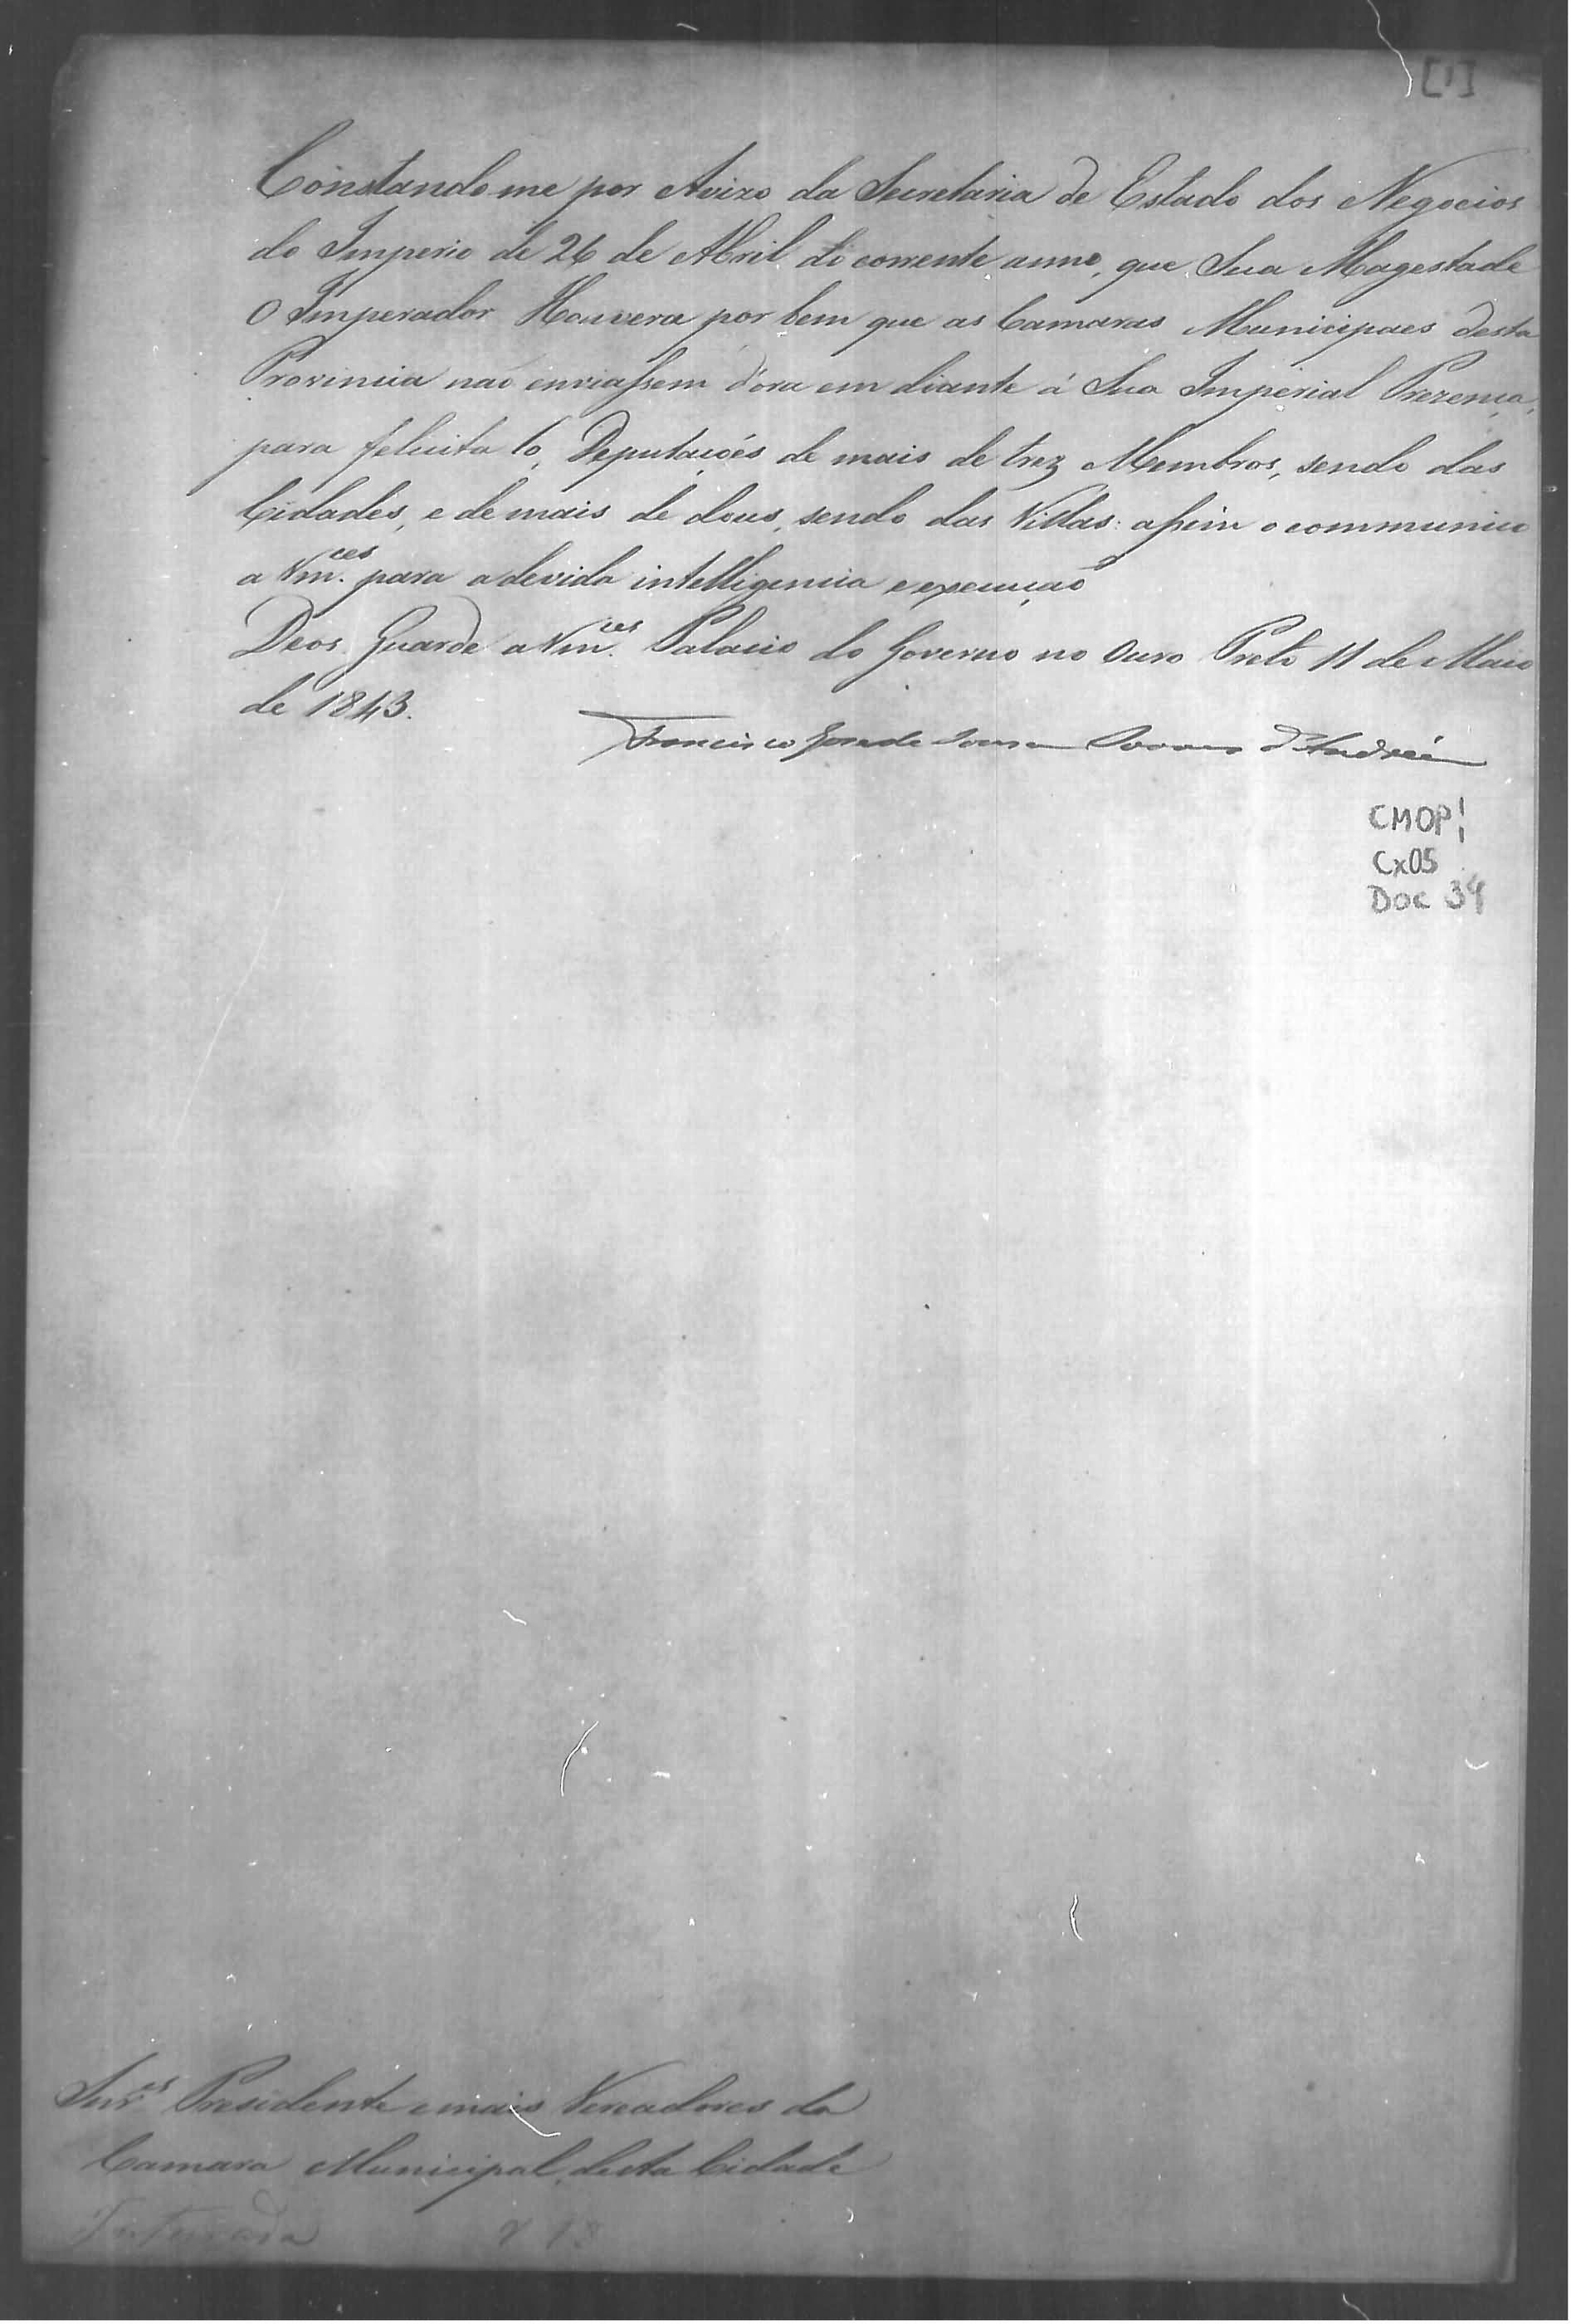 [1]
Constando me por Avizo da Secretaria de Estado dos Negocios
do Imperio de 26 de Abril do corrente anno, que Sua Magestade
O Imperador Houvera por bem que as Camaras Municipaes desta
Provincia naõ enviassem d'ora em diante á Sua Imperial Prezença,
para felicita lo, Deputaçoẽs de mais de trez Membros, sendo das
Cidades, e de mais de dous, sendo das Villas: assim o communico
a Vm.ces para a devida intelligencia e execuçaõ
Deos Guarde a Vm.ces Palacio do Governo no Ouro Preto 11 de Maio
de 1843.
Francisco Jose de Souza Soares d'Andréa
CMOP
Cx05
Doc 34
Snr.es Presidente e mais Vereadores da
Camara Municipal desta Cidade
Inteirada